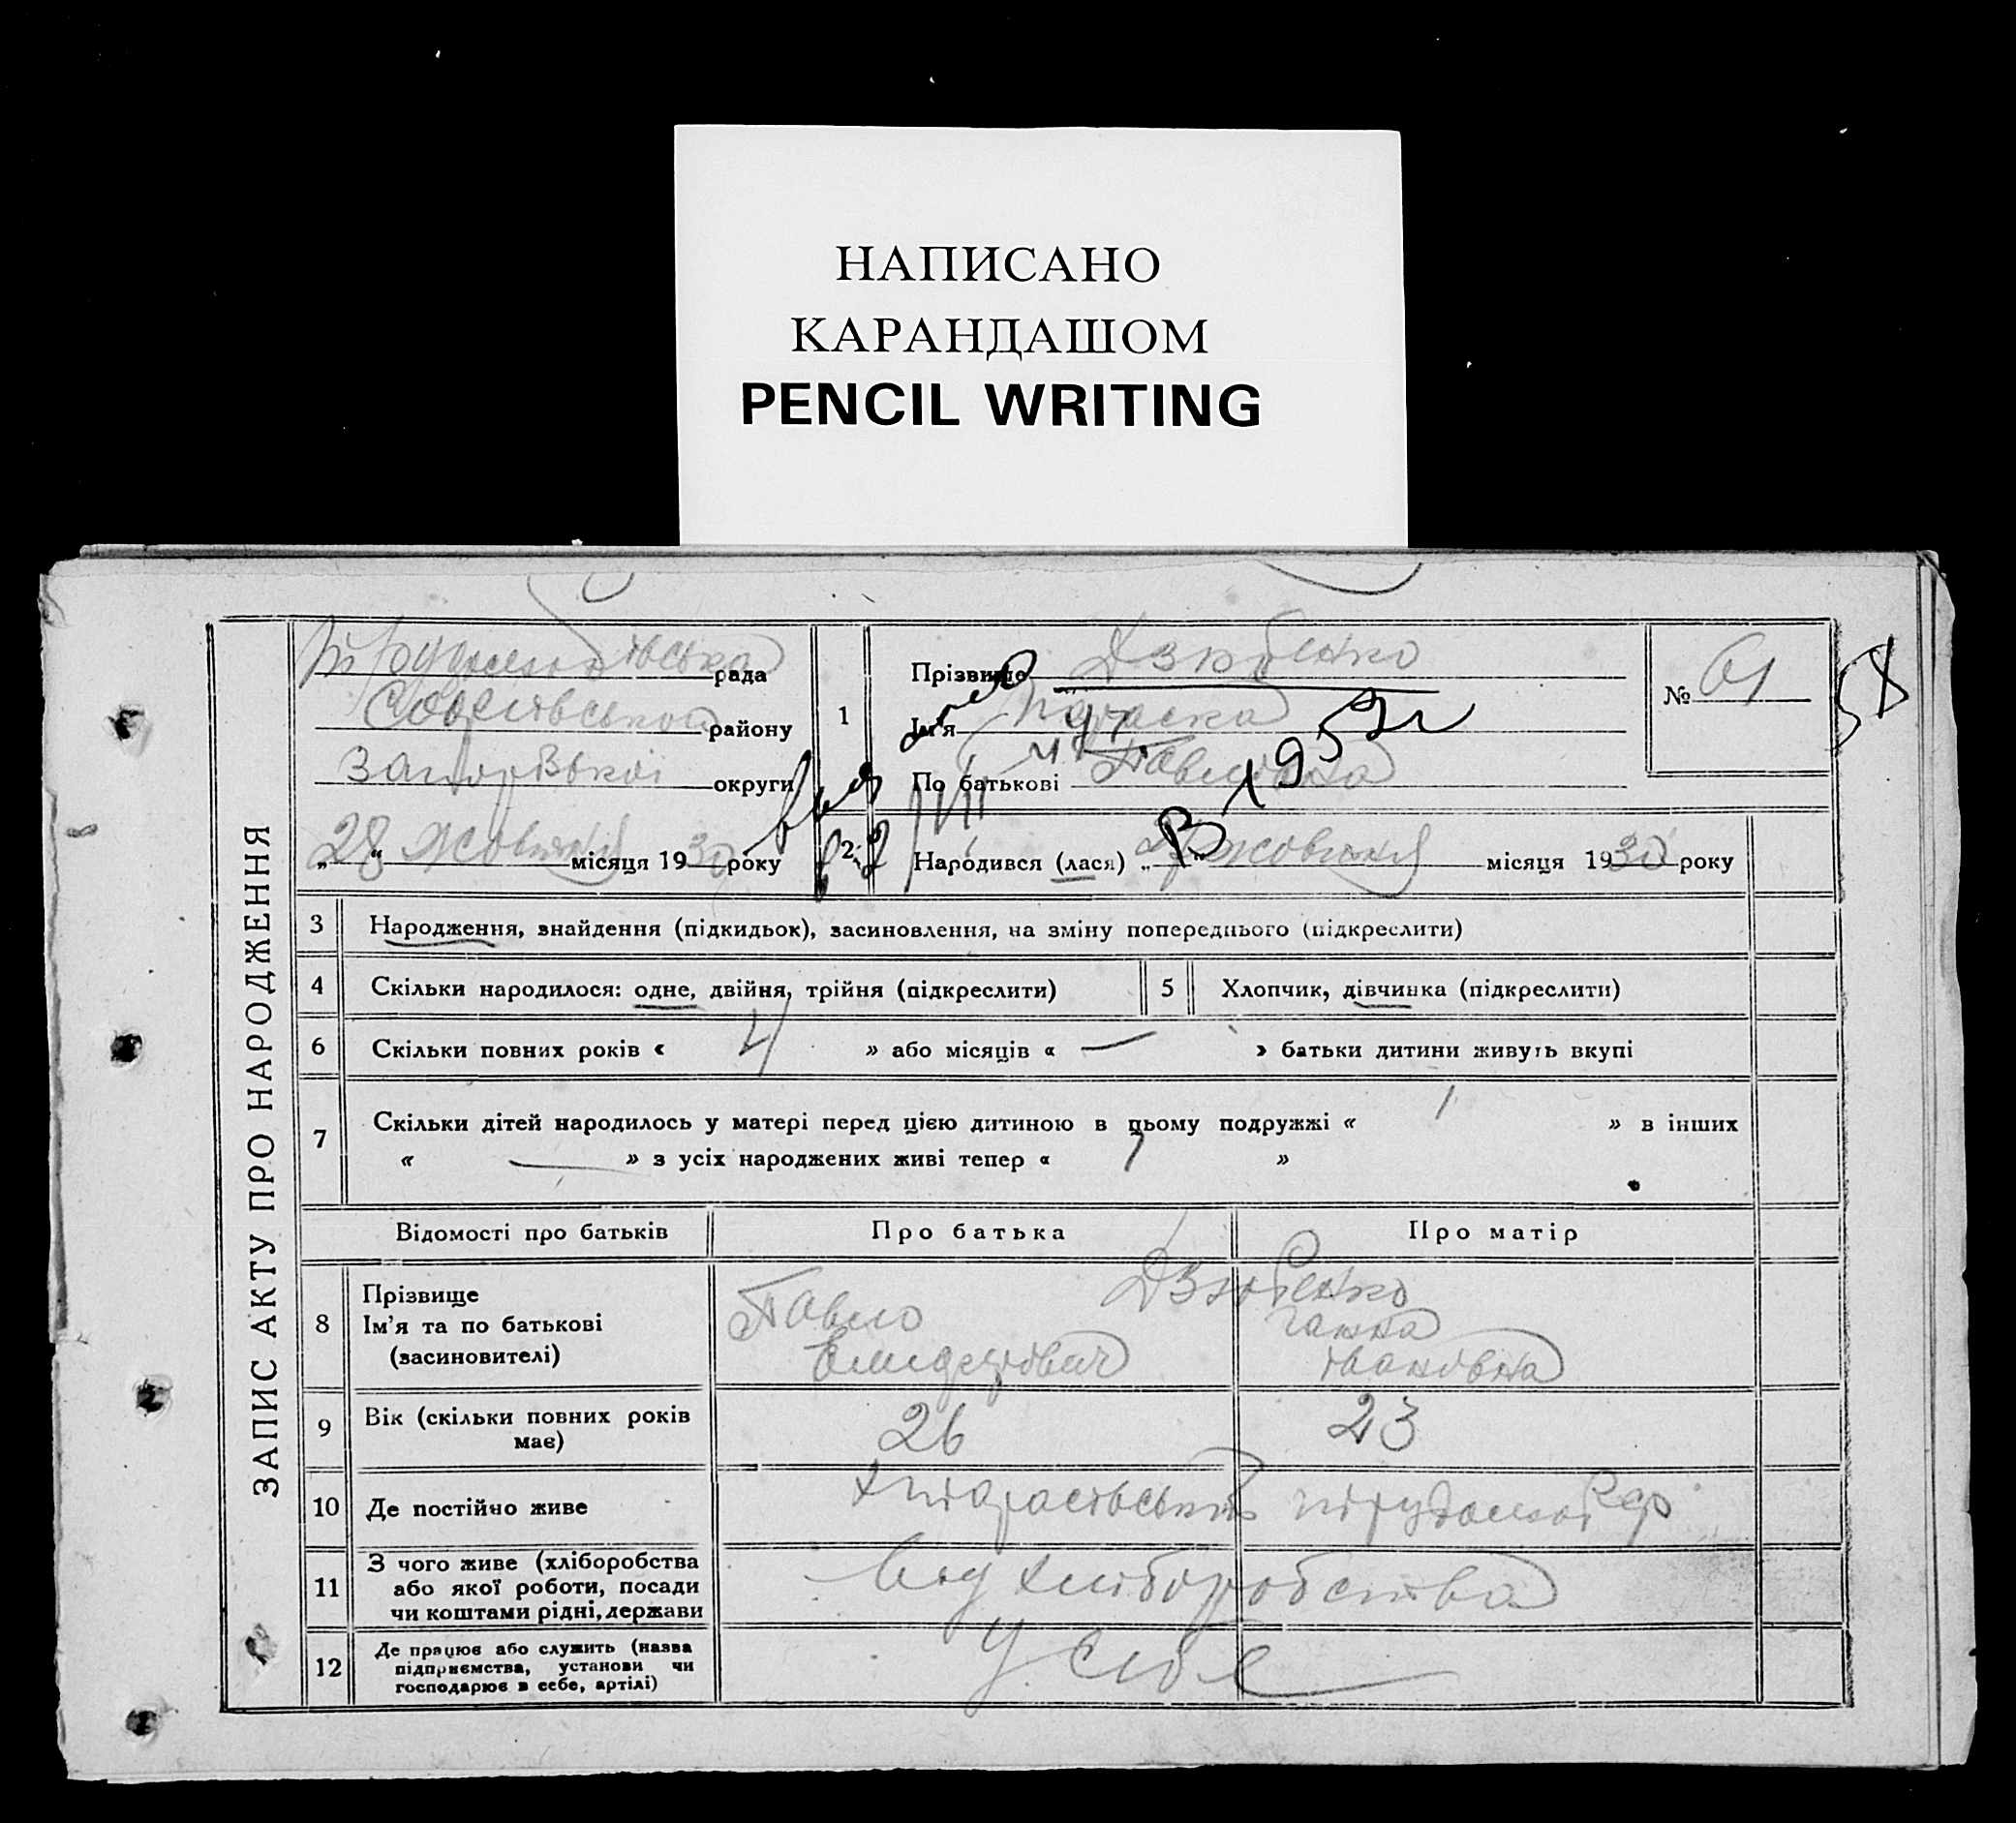 НАПИСАНО
КАРАНДАШОМ
PENCIL WRITING
ЗАПИС АКТУ ПРО НАРОДЖЕННЯ
рада
району
округи
28 жовтня місяця 1930 року
1
Прізвище Дзюбенко
Ім'я Параска
По батькові Павлівна
№ 61
58
1952
2
Народився (лася) жовтня місяця 1930 року
3 Народження, знайдення (підкидьок), засиновлення, на зміну попереднього (підкреслити)
4 Скільки народилося: одне, двійня, трійня (підкреслити)
5 Хлопчик, дівчинка (підкреслити)
6 Скільки повних років « 4 » або місяців « — » батьки дитини живуть вкупі
7 Скільки дітей народилось у матері перед цією дитиною в цьому подружжі « 1 » в інших
« — » з усіх народжених живі тепер « 1 »
Відомості про батьків Про батька Про матір
8 Прізвище Дзюбенко
Ім'я та по батькові Павло Ганна
(засиновителі) Івановна
9 Вік (скільки повних років має) 26 23
10 Де постійно живе
11 З чого живе (хліборобства
або якої роботи, посади
чи коштами рідні, держави
від хліборобства
12 Де працює або служить (назва
підприємства, установи чи
господарює в себе, артілі)
У себе